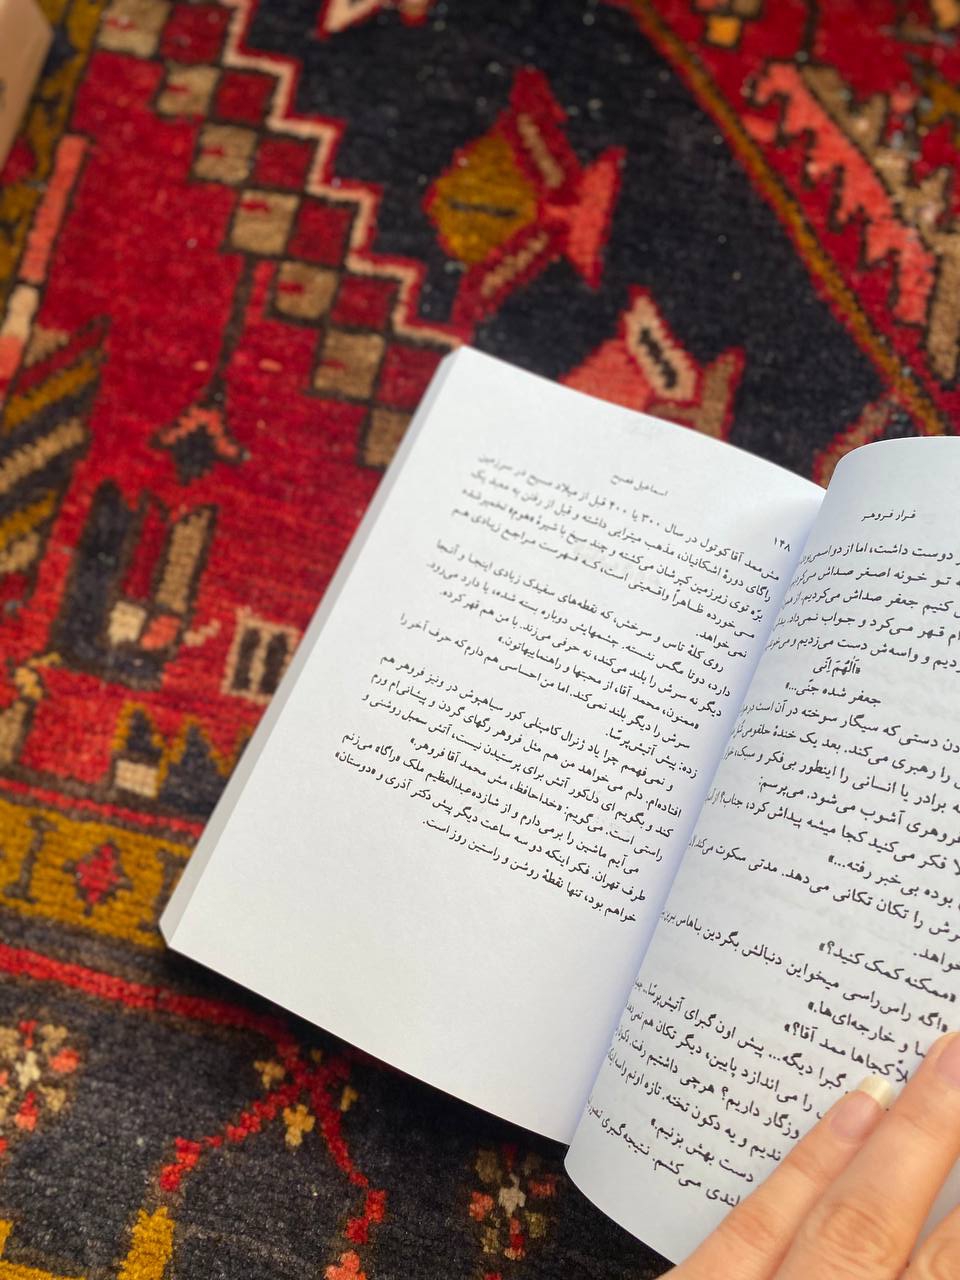 فرار فروهر
دوست داشت، اما از دو اسمی بودن
تو خونه اصغر صداش می‌کردیم
کنیم جعفر صداش می‌کردیم. از همین
قهر می‌کرد و جواب نمی‌داد.
دیم و واسه‌ش دست می‌زدیم و می‌خوندیم
«اللهُمَ اِنّی
جعفر شده جنّی...»
دن دستی که سیگار سوخته در آن است
را رهبری می‌کند. بعد یک خندهٔ حلقومی
برادر یا انسانی را اینطور بی‌فکر و سبک،
فروهری آشوب می‌شود. می‌پرسم:
فکر می‌کنید کجا میشه پیداش کرد، جناب؟
بوده بی‌خبر رفته...»
سرش را تکان تکانی می‌دهد. مدتی سکوت می‌کند
خواهد.
«ممکنه کمک کنید؟»
«اگه راس‌راسی میخواین دنبالش بگردین باهاس
و خارجه‌ای‌ها.»
کجاها ممد آقا؟»
گبرا دیگه... پیش اون گبرای آتیش‌پرسّا...
را می‌اندازد پایین، دیگر تکان هم نمی‌دهد
وزگار داریم؟ هرچی داشتیم رفت.
ندیم و یه دکون تخته. تازه اونم واسه
دست بهش بزنیم.»
بلندی می‌کشم. نتیجه‌گیری
اسماعیل فصیح
۱۴۸
مش‌ممد آقا کوتول در سال ۳۰۰ یا ۴۰۰ قبل از میلاد مسیح در سرزمین
راگای دورهٔ اشکانیان، مذهب میترایی داشته و قبل از رفتن به معبد یک
برّه توی زیرزمین کبرشان می‌کشته و چند سیخ با شیرهٔ «هوم» تخمیر شده
می‌خورده ظاهراً واقعیتی است، که فهرست مراجع زیادی هم
نمی‌خواهد.
روی کلهٔ تاس و سرخش، که نقطه‌های سفیدک زیادی اینجا و آنجا
دارد، دوتا مگس نشسته. چشمهایش دوباره بسته شده، یا دارد می‌رود.
دیگر نه سرش را بلند می‌کند، نه حرفی می‌زند. با من هم قهر کرده.
«ممنون، محمد آقا، از محبتها و راهنماییهاتون.»
سرش را دیگر بلند نمی‌کند. اما من احساسی هم دارم که حرف آخر را
زده: پیش آتیش‌پرسّا.
و نمی‌فهمم چرا یاد ژنرال کامبیلی کور سیاهپوش در ونیز فروهر هم
افتاده‌ام. دلم می‌خواهد من هم مثل فروهر رگهای گردن و پیشانی‌ام ورم
کند و بگویم ای دل‌کور آتش برای پرسیدن نیست، آتش سمبل روشنی و
راستی است. می‌گویم: «خداحافظ، مش محمد آقا فروهر.»
می‌آیم ماشین را برمی‌دارم و از شازده‌عبدالعظیم ملک «راگا» می‌زنم
طرف تهران. فکر اینکه دو سه ساعت دیگر پیش دکتر آذری و «دوستان»
خواهم بود، تنها نقطهٔ روشن و راستین روز است.